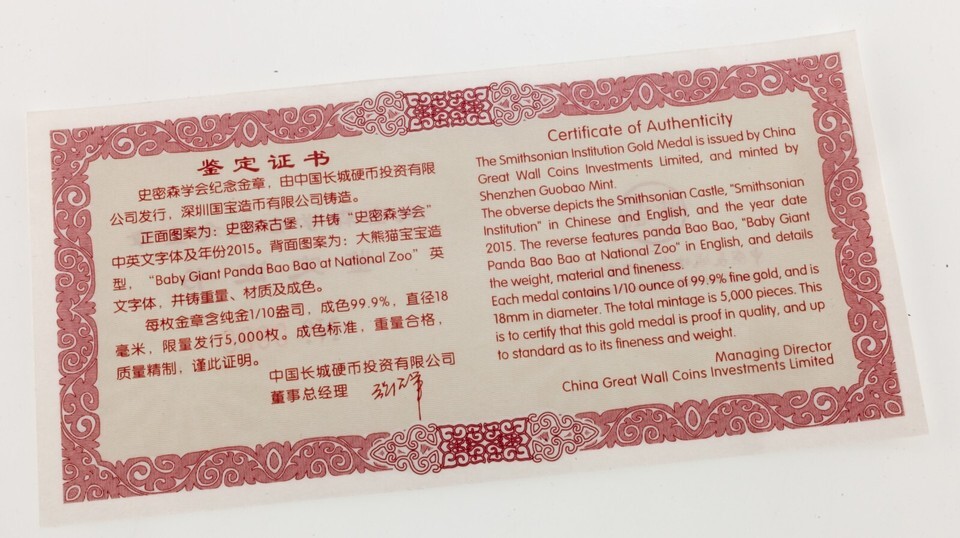 鉴定证书
史密森学会纪念金章，由中国长城硬币投资有限
公司发行，深圳国宝造币有限公司铸造。
正面图案为：史密森古堡，并铸“史密森学会”
中英文字体及年份2015。背面图案为：大熊猫宝宝造
型，“Baby Giant Panda Bao Bao at National Zoo” 英
文字体，并铸重量、材质及成色。
每枚金章含纯金1/10盎司，成色99.9%，直径18
毫米，限量发行5,000枚。成色标准，重量合格，
质量精制，谨此证明。
中国长城硬币投资有限公司
董事总经理
Certificate of Authenticity
The Smithsonian Institution Gold Medal is issued by China
Great Wall Coins Investments Limited, and minted by
Shenzhen Guobao Mint.
The obverse depicts the Smithsonian Castle, "Smithsonian
Institution" in Chinese and English, and the year date
2015. The reverse features panda Bao Bao, "Baby Giant
Panda Bao Bao at National Zoo" in English, and details
the weight, material and fineness.
Each medal contains 1/10 ounce of 99.9% fine gold, and is
18mm in diameter. The total mintage is 5,000 pieces. This
is to certify that this gold medal is proof in quality, and up
to standard as to its fineness and weight.
Managing Director
China Great Wall Coins Investments Limited